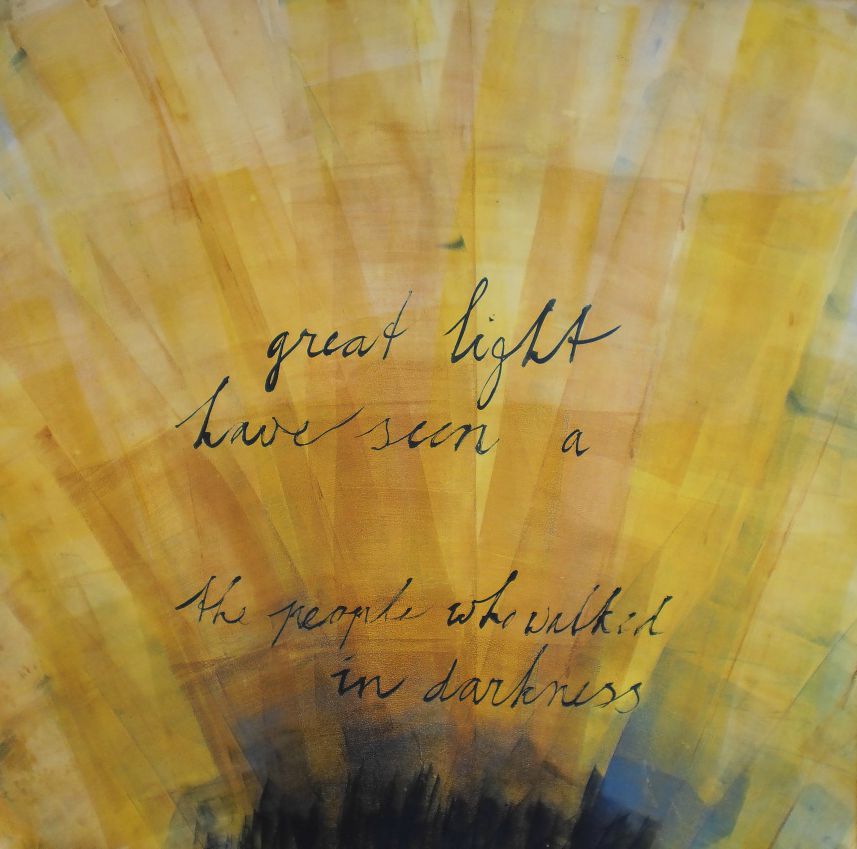 great light
have seen a
the people who walked
in darkness